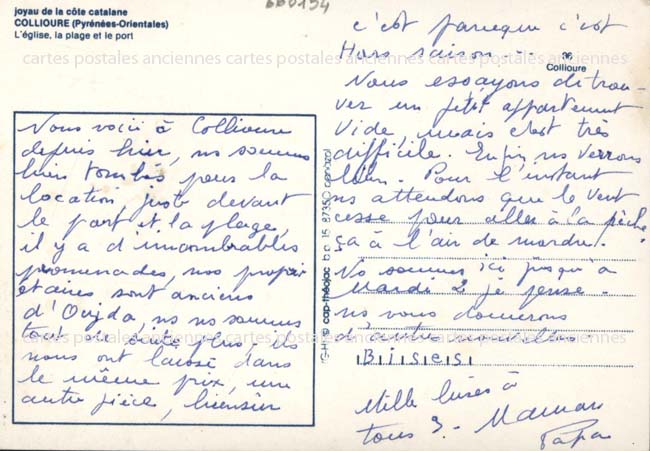 joyau de la côte catalane
COLLIOURE (Pyrénées-Orientales)
L'église, la plage et le port
660194
cartes postales anciennes cartes postales anciennes cartes postales anciennes
Nous voici à Collioure
depuis hier, ns sommes
bien tombés pour la
location, juste devant
le port et la plage,
il y a d'innombrables
promenades, nos propri
étaires sont anciens
d'Oujda, ns ns sommes
tout de suite plus, ils
nous ont laissé dans
le même prix, une
autre pièce, biensûr
c'est parceque c'est
Hors saison...
Collioure
Nous essayons de trou-
ver un petit appartement
vide, mais c'est très
difficile. Enfin ns verrons
bien. Pour l'instant
ns attendons que le vent
cesse pour aller à la pêche.
ça à l'air de mordre.
Ns sommes ici jusqu'à
Mardi 2 je pense.
ns vous donnerons
Bises
Mille bises à
tous 3. - Maman
Papa
cap-théojac b.p. 15 87350 panazol
cartes postales anciennes cartes postales anciennes cartes postales anciennes